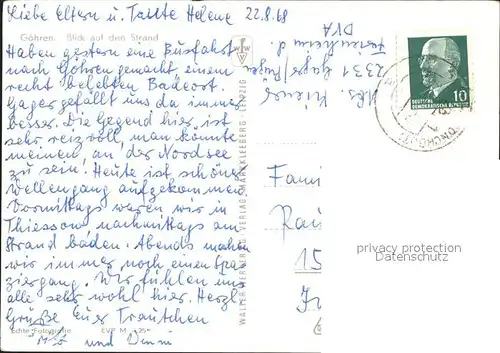 Liebe Eltern u. Tante Helene 22.8.68
Göhren. Blick auf den Strand
Haben gestern eine Busfahrt
nach Göhren gemacht einen
recht belebten Badeort.
Gager gefällt uns da immer
besser. Die Gegend hier, ist
sehr reizvoll, man könnte
meinen, an der Nordsee
zu sein. Heute ist schöner
Wellengang aufgekommen.
Vormittags waren wir in
Thiessow nachmittags am
Strand baden. Abends machen
wir immer noch einen Spa
ziergang. Wir fühlen uns
alle sehr wohl hier. Herzl.
Grüße Euer Trautchen
Echte Fotografie EVP M -,25
und
WALTER WERNER VERLAG MARKKLEEBERG - LEIPZIG
Abs.
2331 Gager/Rügen
Ferienheim d.
DVA
DEUTSCHE
DEMOKRATISCHE REPUBLIK
10
Fami
15
privacy protection
Datenschutz